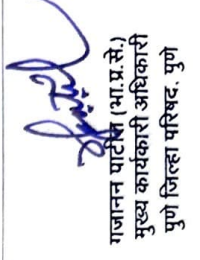 गजानन पाटील (भा.प्र.से.)
मुख्य कार्यकारी अधिकारी
पुणे जिल्हा परिषद, पुणे